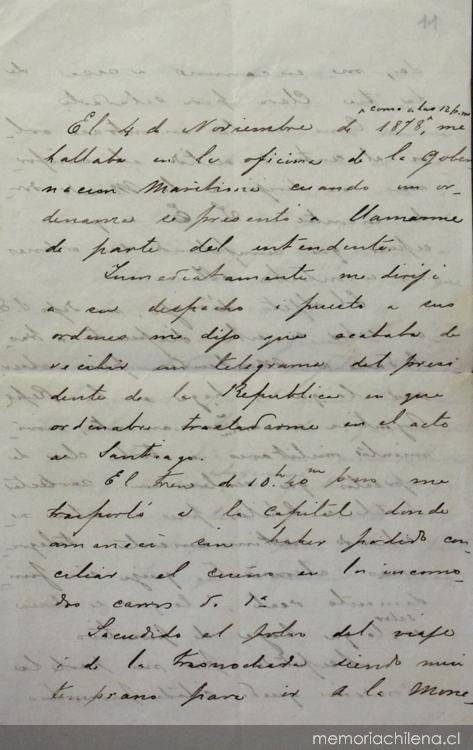 11
como a las 12 p.m
El 4 de Noviembre de 1878, me
hallaba en la oficina de la Gober
nacion Maritima cuando un or-
denanza se presentó a llamarme
de parte del intendente.
Inmediatamente me dirijí
a su despacho i puesto a sus
ordenes me dijo que acababa de
recibir un telegrama del presi
dente de la República en que
ordenaba trasladarme en el acto
a Santiago.
El tren de 10.h 40m p.m me
trasportó a la capital donde
amanecí sin haber podido con
ciliar el sueño en los incomo
dos carros de 1a
Sacudido el polvo del viaje
i de la trasnochada siendo mui
temprano para ir a la Mone-
memoriachilena.cl